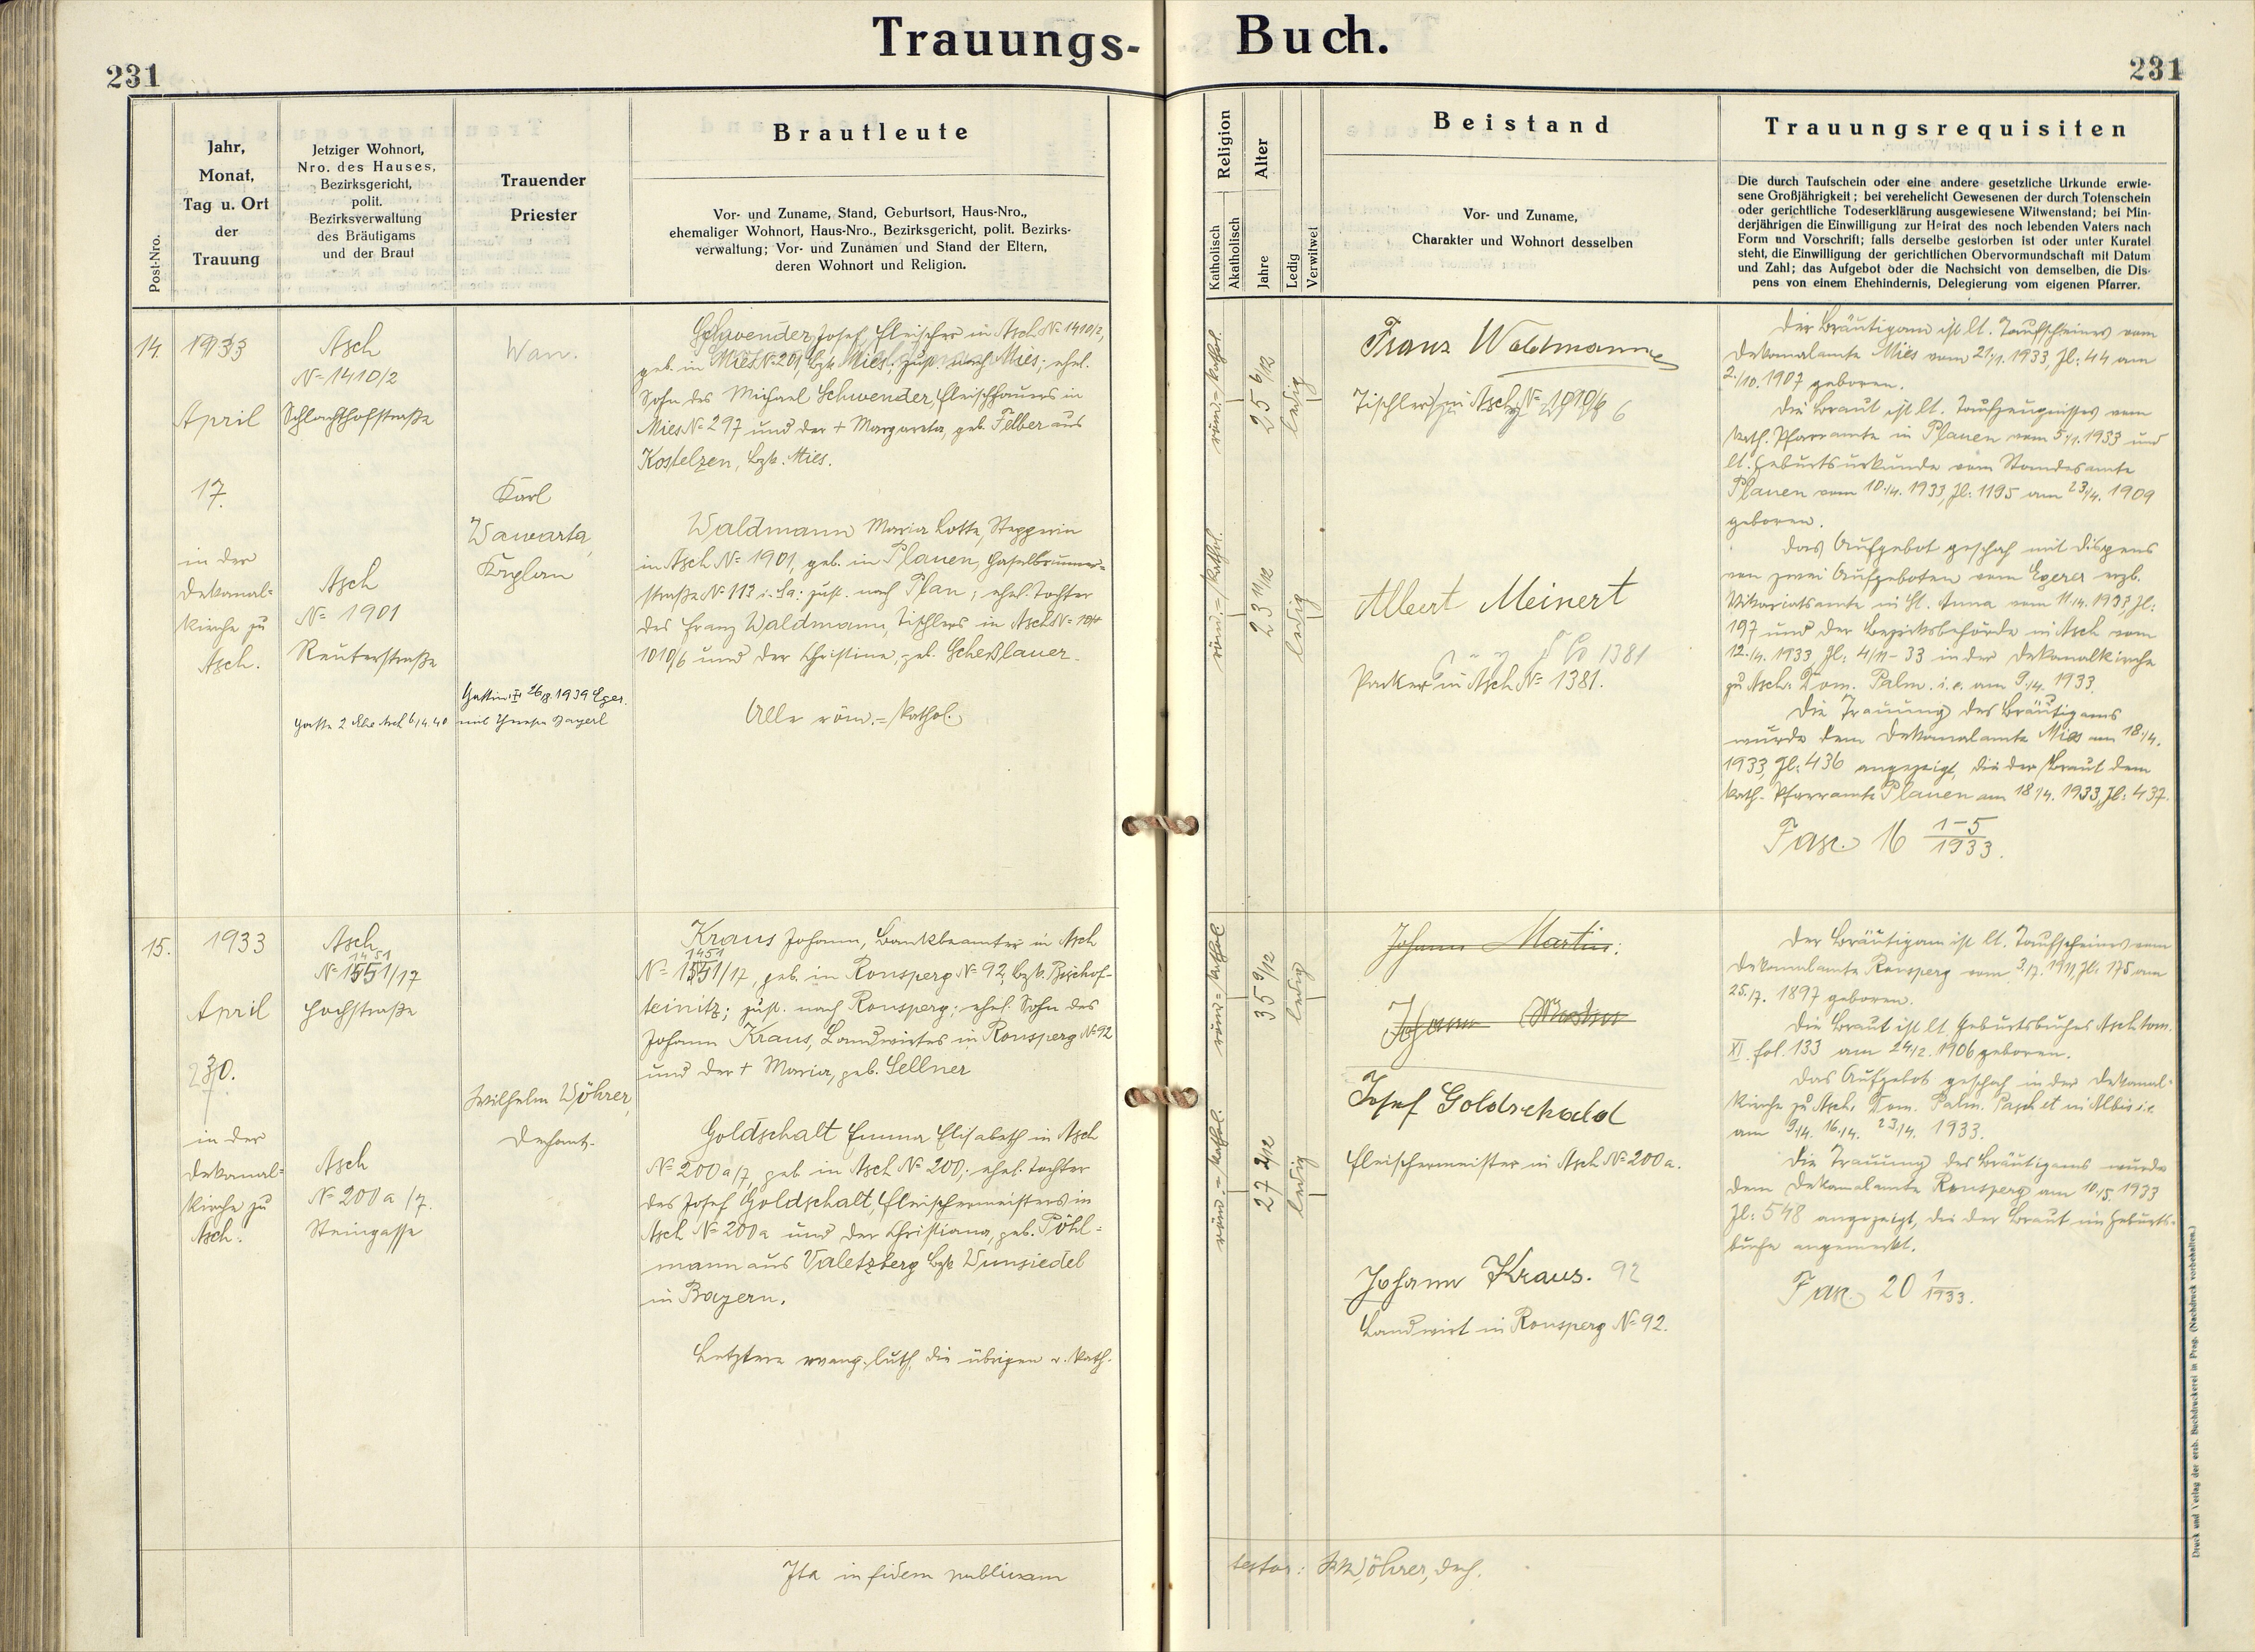 Trauungs- Buch.
231
231
Post-Nro.
Jahr,
Monat,
Tag u. Ort
der
Trauung
Jetziger Wohnort,
Nro. des Hauses,
Bezirksgericht,
polit.
Bezirksverwaltung
des Bräutigams
und der Braut
Trauender
Priester
Brautleute
Vor- und Zuname, Stand, Geburtsort, Haus-Nro.,
ehemaliger Wohnort, Haus-Nro., Bezirksgericht, polit. Bezirks-
verwaltung; Vor- und Zunamen und Stand der Eltern,
deren Wohnort und Religion.
Religion
Katholisch
Akatholisch
Alter
Jahre
Ledig
Verwitwet
Beistand
Vor- und Zuname,
Charakter und Wohnort desselben
Trauungsrequisiten
Die durch Taufschein oder eine andere gesetzliche Urkunde erwie-
sene Großjährigkeit; bei verehelicht Gewesenen der durch Totenschein
oder gerichtliche Todeserklärung ausgewiesene Witwenstand; bei Min-
derjährigen die Einwilligung zur Heirat des noch lebenden Vaters nach
Form und Vorschrift; falls derselbe gestorben ist oder unter Kuratel
steht, die Einwilligung der gerichtlichen Obervormundschaft mit Datum
und Zahl; das Aufgebot oder die Nachsicht von demselben, die Dis-
pens von einem Ehehindernis, Delegierung vom eigenen Pfarrer.
14.
1933
April
17.
in der
Dekanal-
kirche zu
Asch.
Asch
No 1410/2
Schlachthofstraße
Asch
No 1901
Reuterstraße
Gatte 2 Ehe Asch 6/4.40
Waw.
Karl
Wawarta,
Kaplan
Gattin: II 26/8.1939 Eger.
mit
Schwender Josef, Fleischer in Asch No 1410/2,
geb. in Mies No 201, Bzk. Mies; zust. nach Mies; ehel.
Sohn des Michael Schwender, Fleischhauers in
Mies No 297 und der + Margareta, geb. Felber aus
Kostelzen, Bzk. Mies.
Waldmann Maria Lotte, Stepperin
in Asch No 1901, geb. in Plauen, Haselbrunner-
straße No 113 i. Sa. zust. nach Plan; ehel. Tochter
des Franz Waldmann, Tischlers in Asch No
1010/6 und der Christine, geb. Scheßlauer.
Alle röm.-kathol.
röm.-kathol.
25 6/12
ledig
röm.-kathol.
23 11/12
ledig
Franz Waldmann
Tischler in Asch No 1010/6
Albert Meinert
1381
Packer in Asch No 1381.
Der Bräutigam ist lt. Taufscheines vom
Dekanalamte Mies vom 21/1. 1933, Zl: 44 am
2./10. 1907 geboren.
Die Braut ist lt. Taufzeugnisses vom
kath. Pfarramte in Plauen vom 5/1. 1933 und
lt. Geburtsurkunde vom Standesamte
Plauen vom 10./4. 1933, Zl: 1195 am 23/4. 1909
geboren.
Das Aufgebot geschah mit Dispens
von zwei Aufgeboten vom Egerer erzb.
Vikariatsamte in St. Anna vom 11./4. 1933, Zl:
197 und der Bezirksbehörde in Asch vom
12./4. 1933, Zl: 4/11-33 in der Dekanalkirche
zu Asch: Dom. Palm. i. e. am 9./4. 1933.
Die Trauung des Bräutigams
wurde dem Dekanalamte Mies am 18./4.
1933, Zl: 436 angezeigt, die der Braut dem
kath. Pfarramte Plauen am 18./4. 1933, Zl: 437.
Fasc. 16 1-5/1933.
15.
1933
April
30.
in der
Dekanal-
kirche zu
Asch.
Asch
1451
No 1551/17
Hochstraße
Asch
No 200a/7.
Steingasse
Wilhelm Wöhrer,
Dechant.
Kraus Johann, Bankbeamter in Asch
1451
No 1551/17, geb. in Ronsperg No 92, Bzk. Bischof-
teinitz; zust. nach Ronsperg; ehel. Sohn des
Johann Kraus, Landwirtes in Ronsperg No 92
und der + Maria, geb. Sellner
Goldschalt Emma Elisabeth in Asch
No 200a/7, geb. in Asch No 200; ehel. Tochter
des Josef Goldschalt, Fleischermeisters in
Asch No 200a und der Christiana, geb. Pöhl-
mann aus Valetzberg Bzk Wunsiedel
in Bayern.
Letztere evang. luth. die übrigen r. kath.
röm.-kathol.
35 9/12
ledig
röm.-kathol.
27 2/12
ledig
Johann Martin:
Johann Martin
Josef Goldschald
Fleischermeister in Asch No 200a.
Johann Kraus. 92
Landwirt in Ronsperg No 92.
Der Bräutigam ist lt. Taufscheines vom
Dekanalamte Ronsperg vom 3./7. 1911, Zl: 175 am
25./7. 1897 geboren.
Die Braut ist lt. Geburtsbuches Asch tom.
XI. fol. 133 am 24/2. 1906 geboren.
Das Aufgebot geschah in der Dekanal-
kirche zu Asch: Dom. Palm. Pasch et in Albis i. e.
am 9/4. 16./4. 23./4. 1933.
Die Trauung des Bräutigams wurde
dem Dekanalamte Ronsperg am 10./5. 1933
Zl: 548 angezeigt, die der Braut im Geburts-
buche angemerkt.
Fasc. 20 1/1933.
Ita in fidem publicam
testor: Wöhrer, Dech.
Druck und Verlag der erzb. Buchdruckerei in Prag. (Nachdruck vorbehalten.)